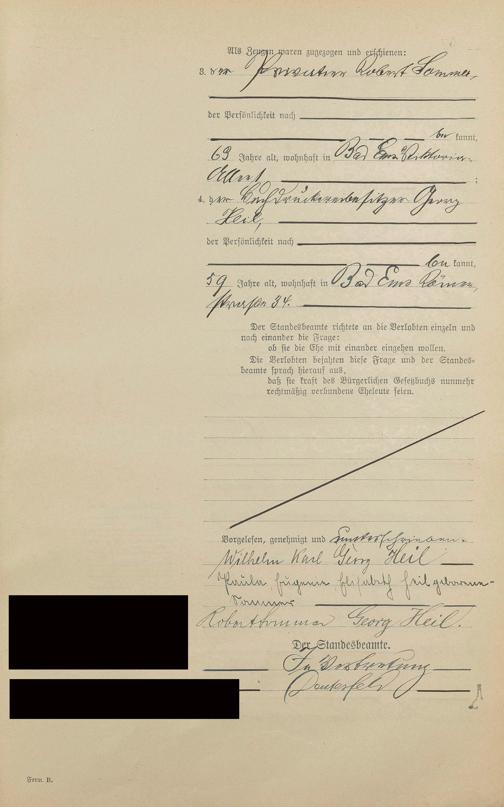 Als Zeugen waren zugezogen und erschienen:
3. der Privatier Robert Sommer,
der Persönlichkeit nach
be kannt,
69 Jahre alt, wohnhaft in Bad Ems Viktoria-
Allee ;
4. der Buchdruckereibesitzer Georg
Heil,
der Persönlichkeit nach
be kannt,
59 Jahre alt, wohnhaft in Bad Ems Römer-
straße 34.
Der Standesbeamte richtete an die Verlobten einzeln und
nach einander die Frage:
ob sie die Ehe mit einander eingehen wollen.
Die Verlobten bejahten diese Frage und der Standes-
beamte sprach hierauf aus,
daß sie kraft des Bürgerlichen Gesetzbuchs nunmehr
rechtmäßig verbundene Eheleute seien.
Vorgelesen, genehmigt und unterschrieben.
Wilhelm Karl Georg Heil
Paula Eugenie Elisabeth Heil geborene
Sommer
Robert Sommer Georg Heil.
Der Standesbeamte.
In Vertretung
Form. B.